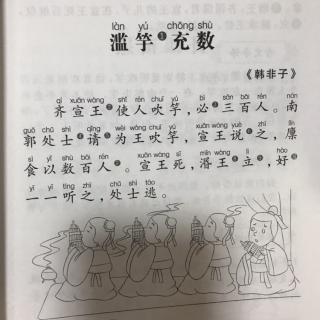 làn yú chōng shù
滥竽❶充数
《韩非子》
qí xuān wáng shǐ rén chuī yú bì sān bǎi rén nán
齐宣王使人吹竽，必三百人。南
guō chǔ shì qǐng wèi wáng chuī yú xuān wáng yuè zhī lǐn
郭处士请为王吹竽，宣王说之，廪
sì yǐ shù bǎi rén xuān wáng sǐ mǐn wáng lì hào
食以数百人。宣王死，湣王立，好
yī yī tīng zhī chǔ shì táo
一一听之，处士逃。